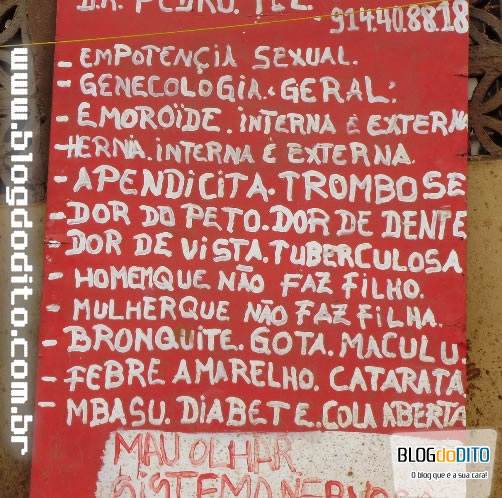 DR. PEDRO. TEL.
914.40.88.18
- EMPOTENÇIA SEXUAL.
- GENECOLOGIA. GERAL.
- EMOROÏDE. INTERNA E EXTERNA
- HERNIA. INTERNA E EXTERNA.
- APENDICITA. TROMBOSE
- DOR DO PETO. DOR DE DENTE
DOR DE VISTA. TUBERCULOSA
- HOMEMQUE NÃO FAZ FILHO.
- MULHERQUE NÃO FAZ FILHA.
- BRONQUITE. GOTA. MACULU.
- FEBRE AMARELHO. CATARATA
- MBASU. DIABETE. COLA ABERTA
MAU OLHAR.
SISTEMA NERVO
www.blogdodito.com.br
BLOGdoDITO
O blog que é a sua cara!